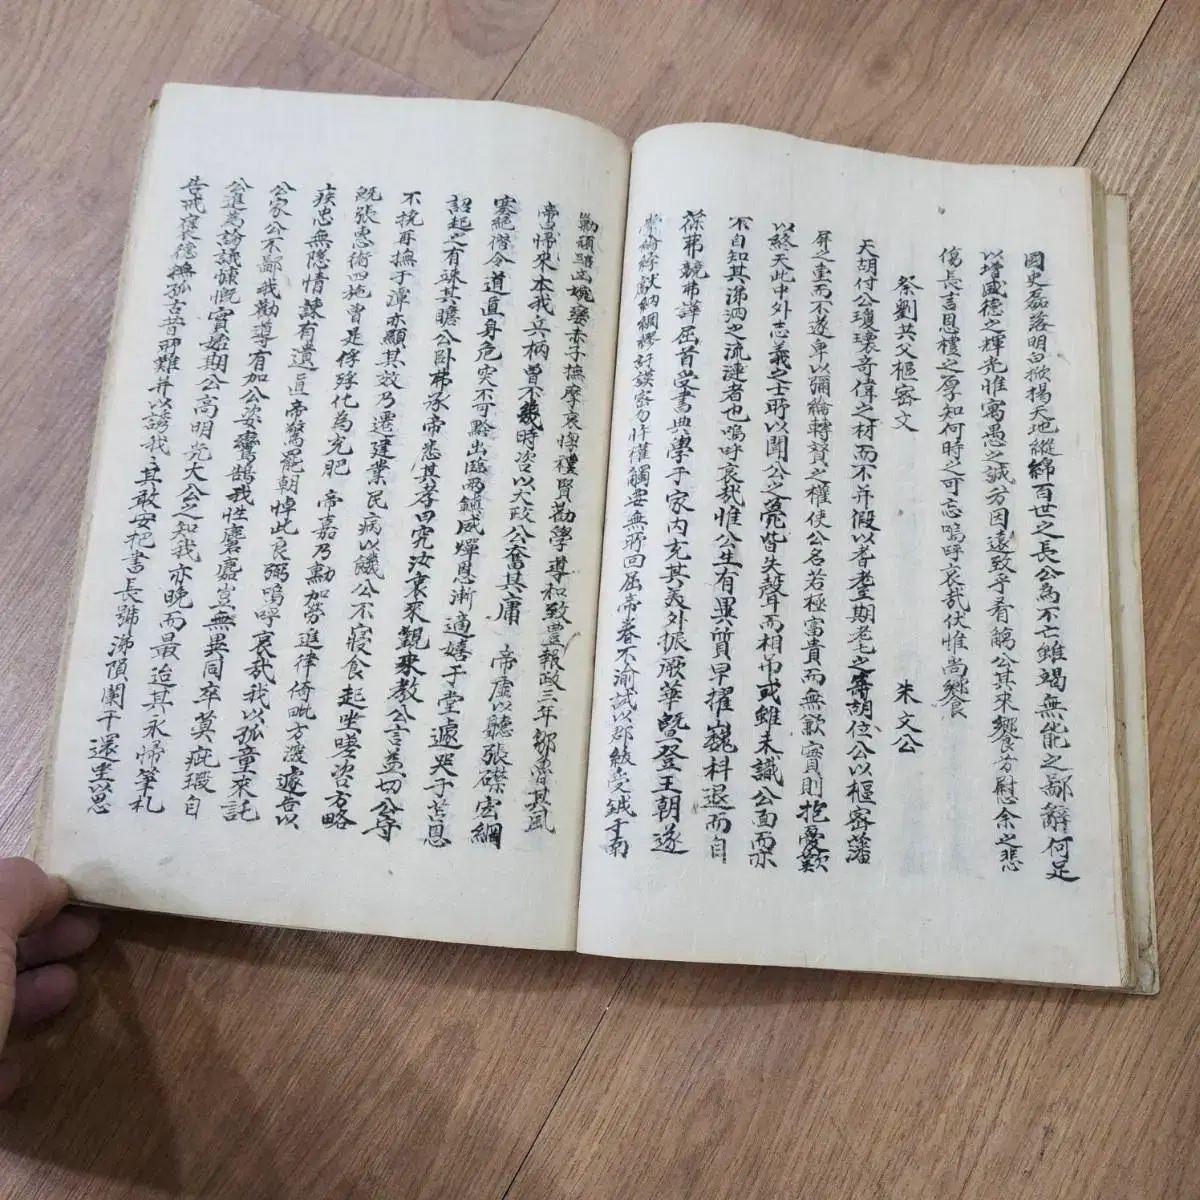 國史磊落明白掀揚天地縱綿百世之長公為不亡雖竭無能之鄙辭何足
以增盛德之輝光惟寓愚之誠方因遠致乎肴觴公其來饗兮慰余之悲
傷長言恩禮之厚知何時之可忘嗚呼哀哉伏惟尚饗
祭劉共父樞密文 朱文公
天胡付公瓌瓌奇偉之材而不并假以耆耋期老之壽胡位公以樞密藩
屏之重而不遂卑以彌綸轉贊之權使公名若極富貴而無歉實則抱憂歎
以終天此中外志義之士所以聞公之薨皆失聲而相吊或雖未識公面而亦
不自知其涕泗之流漣者也嗚呼哀哉惟公生有異質早擢巍科退而自
篠弗競弗譁屈首受書典學于家內充其美外振厥華曁登王朝遂
掌綸綍獻納綢繆訏謨密勿忤權觸姦無所回屈帝眷不渝試以郡紱受鉞于南
勦碩輯幽婉孌赤子撫摩哀惸禮賢勸學導和致豊報政三年鄒魯其風
帝曰歸來本我兵柄曾不幾時咨以大政公奮其庸 帝虛以聽張磔宏綱
塞絕僭令道直身危突不可黔出臨兩鎮威燀恩漸適嬉于堂遽哭于苫恩
詔起之有諫其瞻公卧弗承帝悉其孝曰究汝哀來觀來教公言益切公守
不挽再撫于潭亦顯其效乃遷建業民病以饑公不寢食起坐嘆咨方略
旣張惠術四施曾是俘殍化為充肥 帝嘉乃勳加勞進律倚毗方渥遽告以
疾忠無隱情諫有遺直帝驚罷朝悼此良弼嗚呼哀哉我以孤童來託
公家公不鄙我勸導有加公姿鸞鵠我性麏麚豈無異同卒莫疵瑕自
公進為論議慷慨實始期公高明光大公之知我亦晚而最迨其永歸筆札
告戒褒德撫孤古昔所難并以諉我 其敢安把書長號涕隕闌干還坐以思